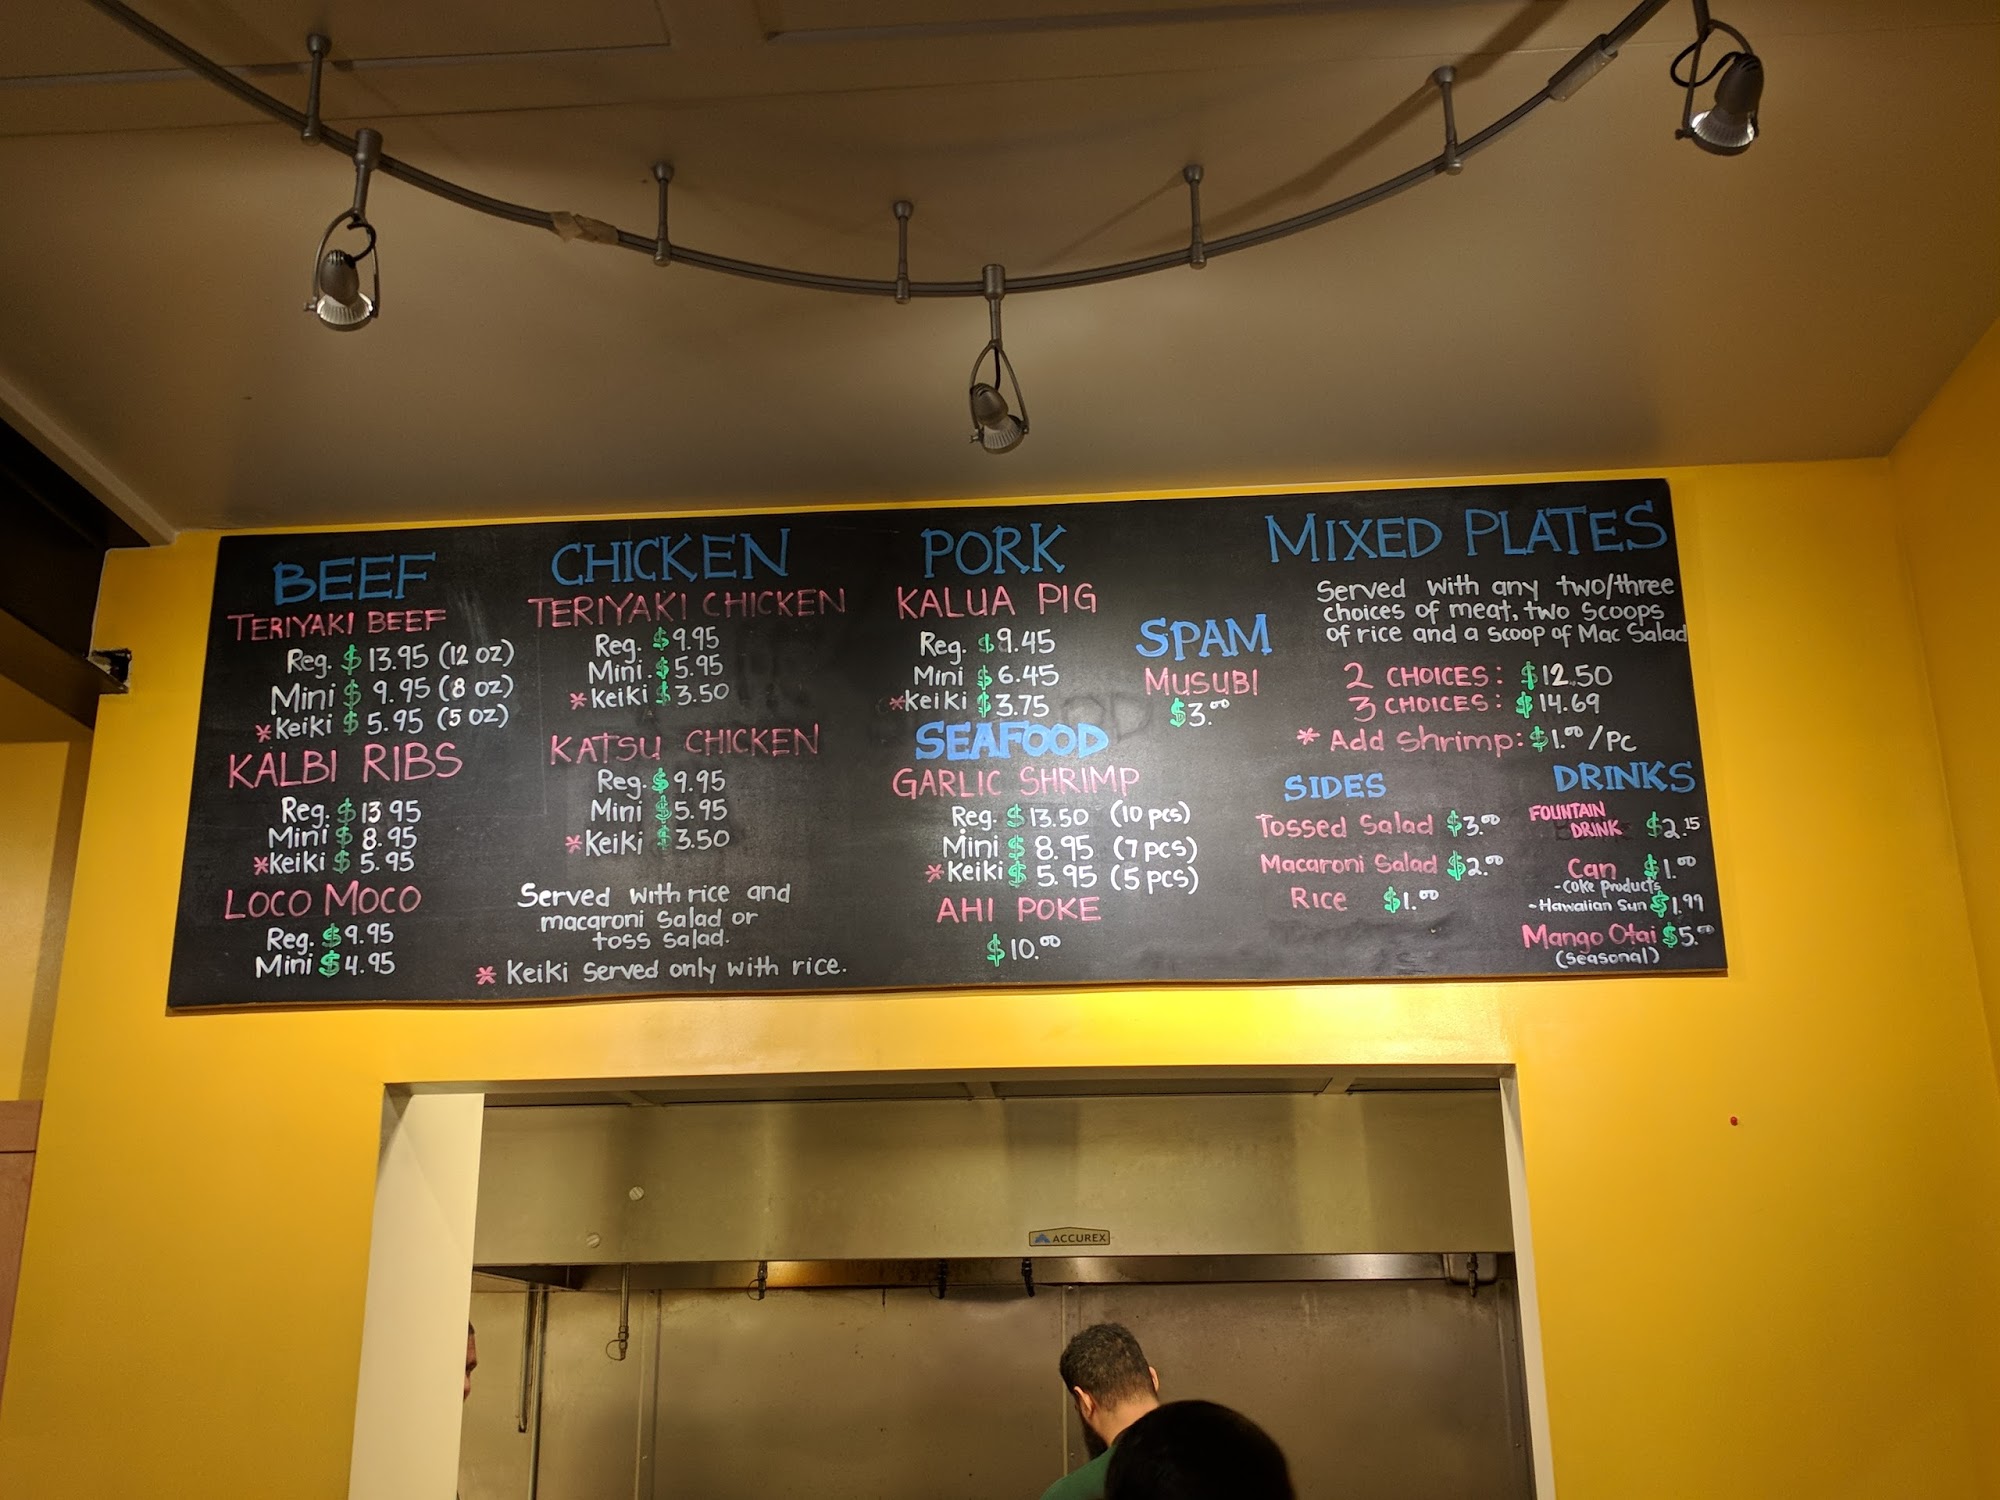 BEEF
TERIYAKI BEEF
Reg. $13.95 (12 oz)
Mini $9.95 (8 oz)
*Keiki $5.95 (5 oz)
KALBI RIBS
Reg. $13 95
Mini $8.95
*Keiki $5.95
LOCO MOCO
Reg. $9.95
Mini $4.95
CHICKEN
TERIYAKI CHICKEN
Reg. $9.95
Mini. $5.95
*Keiki $3.50
KATSU CHICKEN
Reg. $9.95
Mini $5.95
*Keiki $3.50
Served with rice and
macaroni salad or
toss salad.
* Keiki served only with rice.
PORK
KALUA PIG
Reg. $9.45
Mini $6.45
*Keiki $3.75
SEAFOOD
GARLIC SHRIMP
Reg. $13.50 (10 pcs)
Mini $8.95 (7 pcs)
*Keiki $5.95 (5 pcs)
AHI POKE
$10.00
SPAM
MUSUBI
$3.00
MIXED PLATES
Served with any two/three
choices of meat, two scoops
of rice and a scoop of Mac Salad
2 CHOICES: $12.50
3 CHOICES: $14.69
* Add Shrimp: $1.00/Pc
SIDES
Tossed Salad $3.00
Macaroni Salad $2.00
Rice $1.00
DRINKS
FOUNTAIN
DRINK $2.15
Can $1.00
-Coke Products
-Hawaiian Sun $1.99
Mango Otai $5.00
(seasonal)
ACCUREX